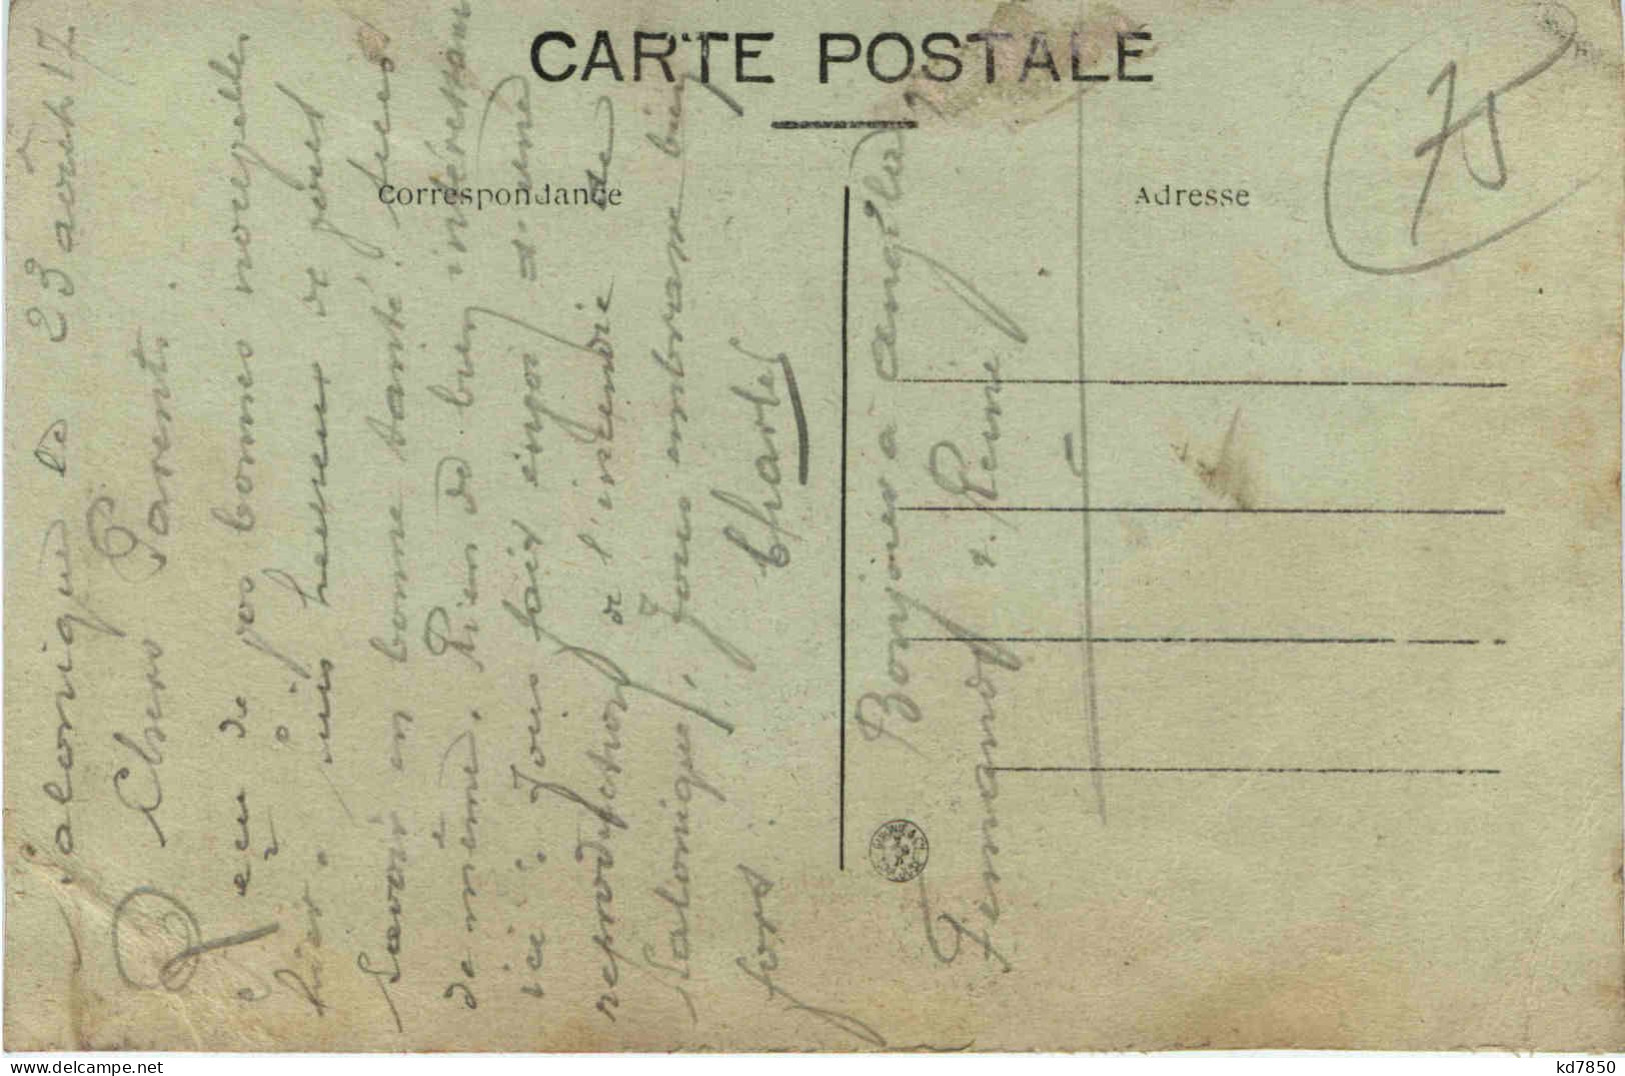 CARTE POSTALE
Correspondance
Adresse
75
Salonique le 23 août 17
Chers Parents.
Reçu de vos bonnes nouvelles
hier. suis heureux de vous
savoir en bonne santé. suis
de même. Rien de bien intéressant
ici. Vous fait envoi d'une
reproduction de l'incendie de
Salonique, vous embrasse bien
fort.
Charles
Bonjour à Angèle
Fernand & Renée
kd7850